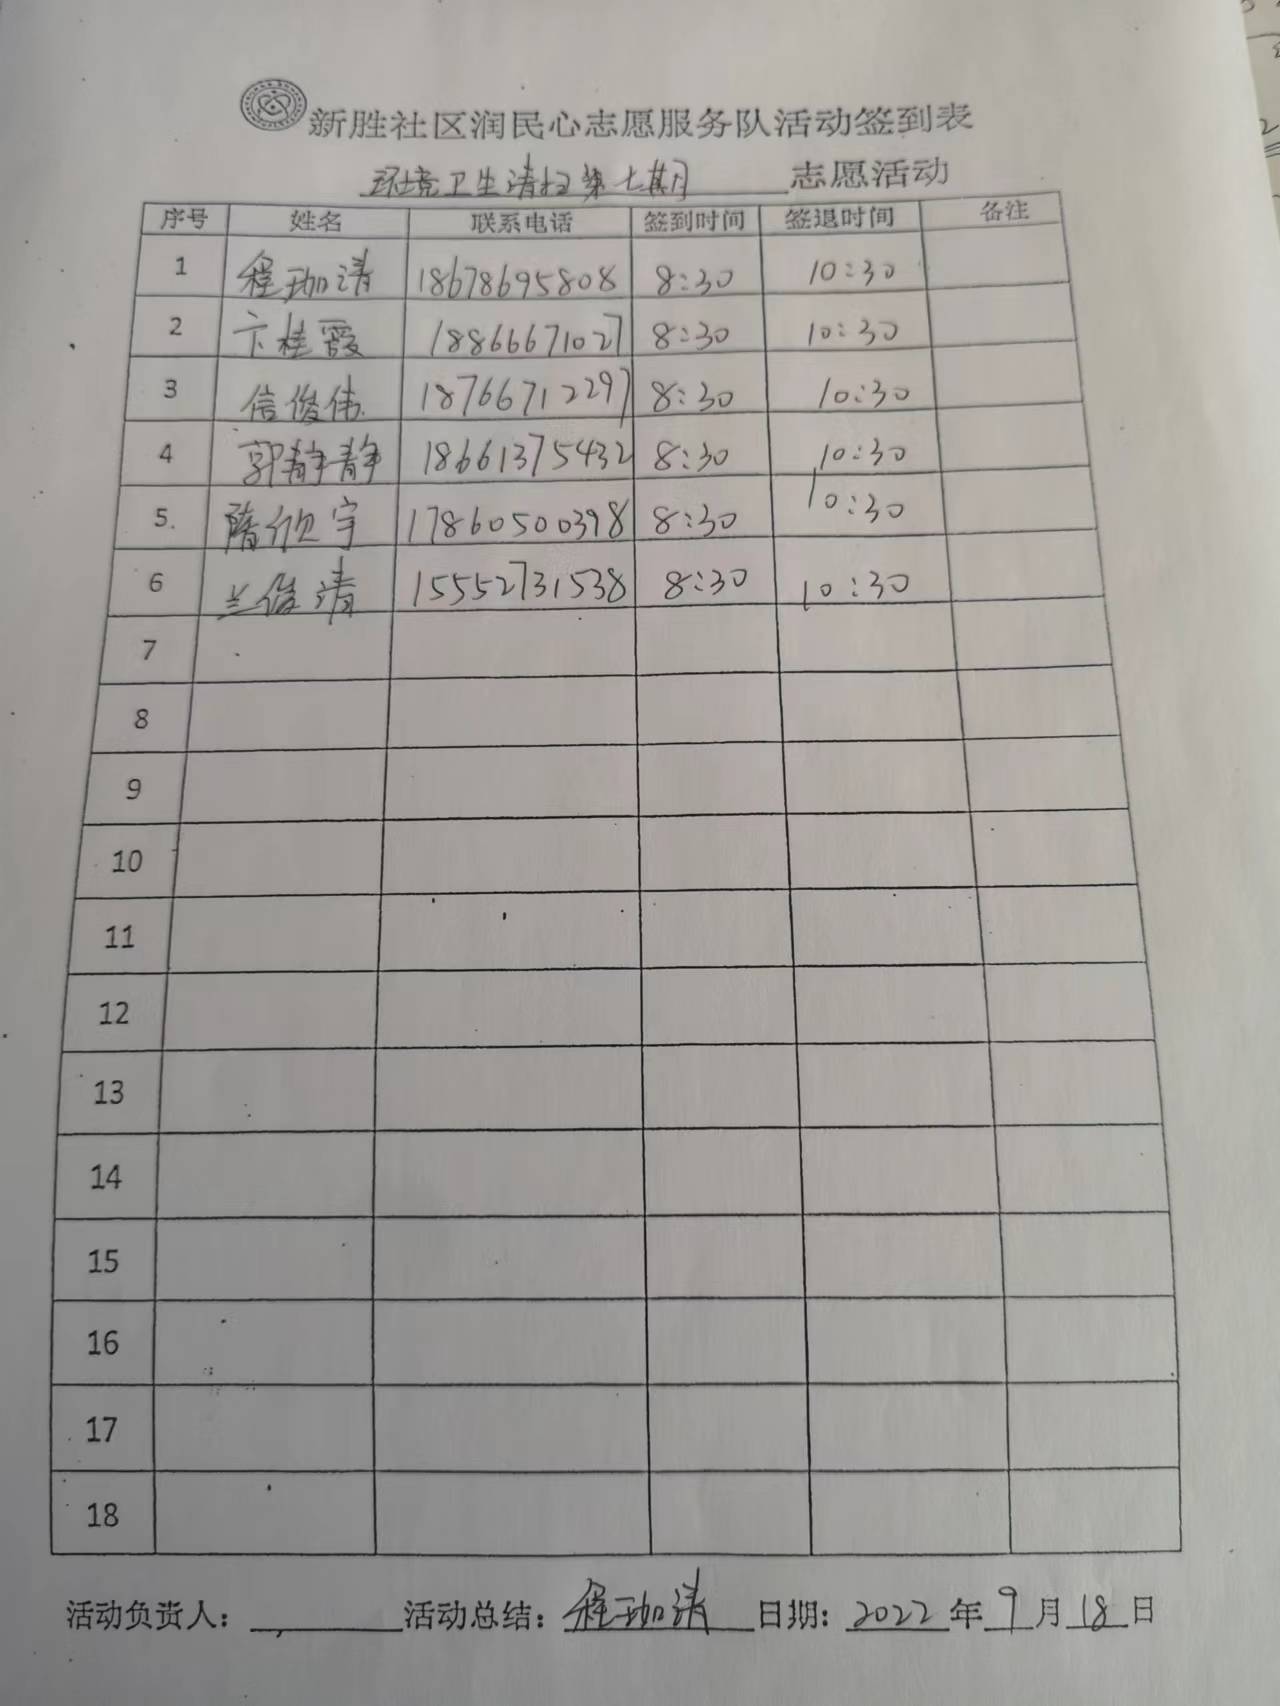 新胜社区润民心志愿服务队活动签到表
环境卫生清扫第七期 志愿活动
序号 姓名 联系电话 签到时间 签退时间 备注
1 程珈清 18678695808 8:30 10:30
2 卞桂霞 18866671027 8:30 10:30
3 信俊伟 18766712297 8:30 10:30
4 郭静静 18661375432 8:30 10:30
5 隋欣宇 17860500398 8:30 10:30
6 兰俊清 15552731538 8:30 10:30
7
8
9
10
11
12
13
14
15
16
17
18
活动负责人: 活动总结: 程珈清 日期: 2022 年 9 月 18 日